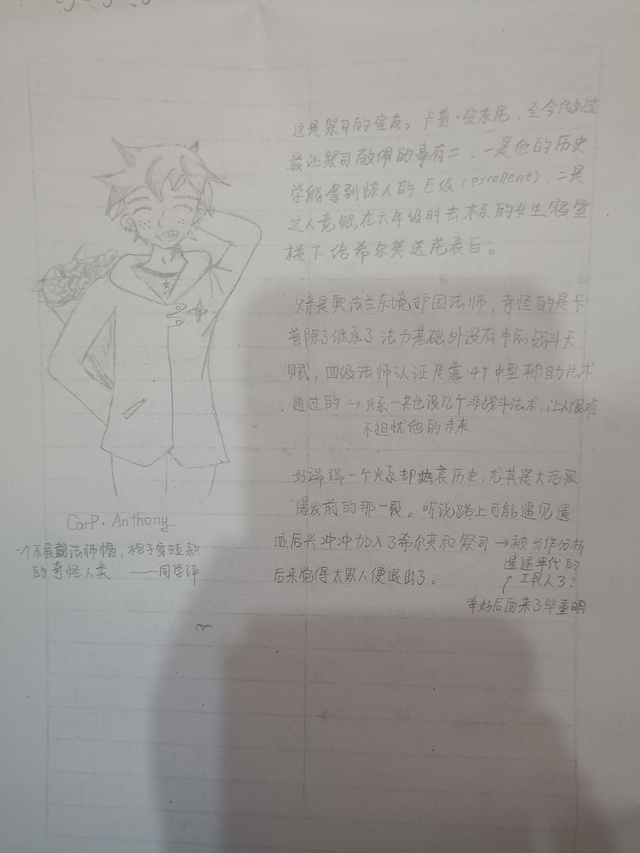 这是祭司的室友，卡普·安东尼，至今做过
最让祭司敬佩的事有二，一是他的历史
学能拿到惊人的E级（excellent），二是
这人竟然在六年级时去 的女生寝室
楼下给希尔芙送花表白。
父亲是奥法兰东境护国法师，奇怪的是卡
普除了继承了法力基础外没有半点战斗天
赋，四级法师认证是靠4个中型辅助法术
通过的→火系一共也没几个非战斗法术，让人很难
不担忧他的未来
好端端一个火系却热衷历史，尤其是大活采
爆发前的那一段。听说路上可能遇见遗
迹后兴冲冲加入了希尔芙和祭司→被当作分析
遗迹年代的
工具人了！
后来觉得太累人便退出了。
幸好后面来了毕重明
Carp·Anthony
一个不爱戴法师帽，袍子穿短款
的奇怪人类 ——同学评